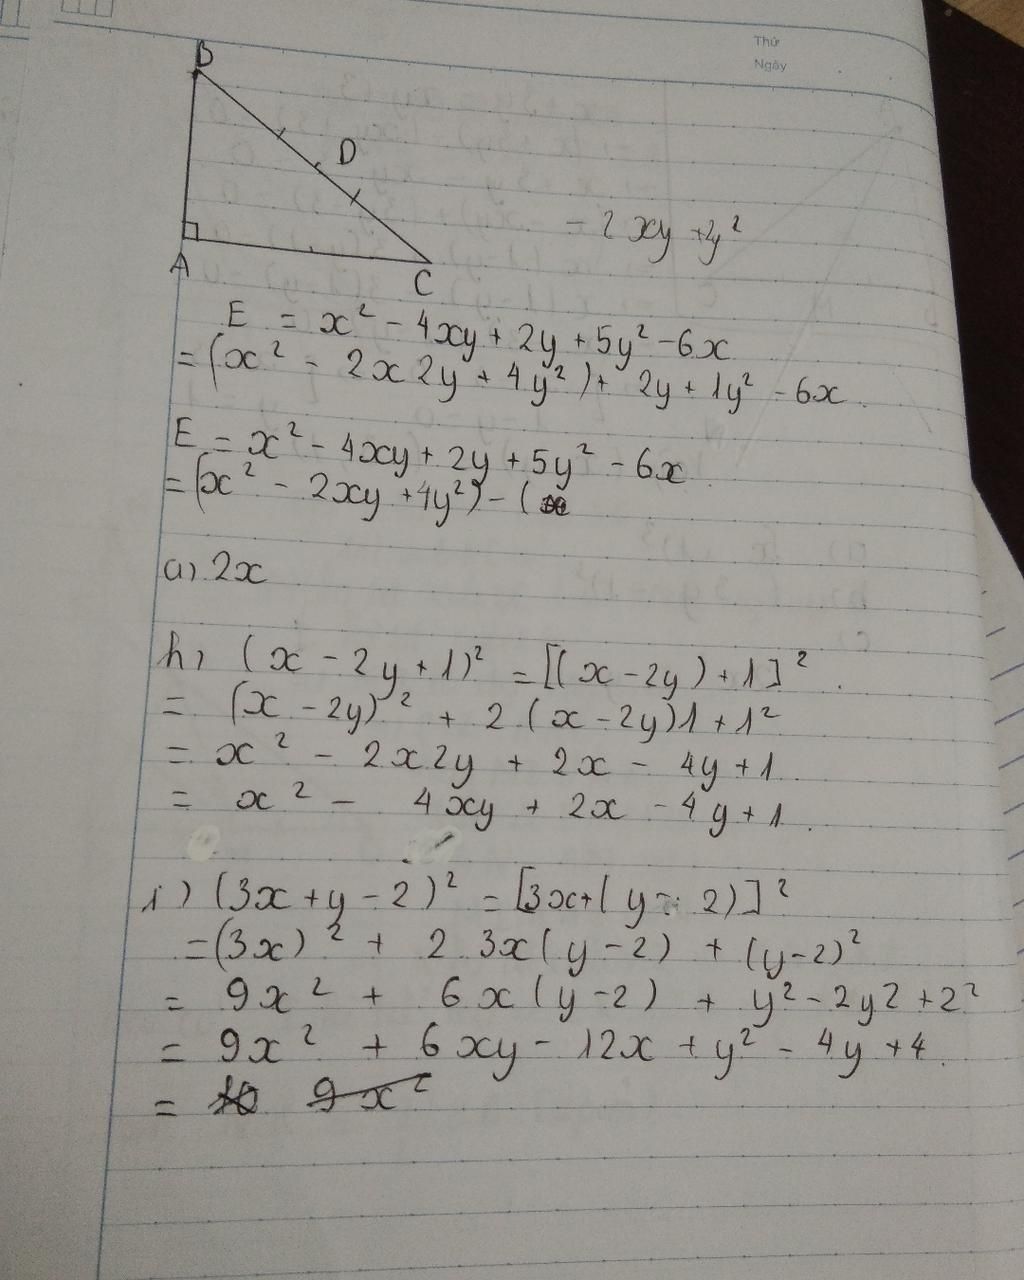 Thứ
Ngày
B
D
A
C
- 2xy + y²
E = x² - 4xy + 2y + 5y² - 6x
= (x² - 2x2y + 4y²) + 2y + 1y² - 6x
E = x² - 4xy + 2y + 5y² - 6x
= (x² - 2xy + 4y²) - (
a) 2x
h) (x - 2y + 1)² = [(x - 2y) + 1]².
= (x - 2y)² + 2(x - 2y)1 + 1²
= x² - 2x2y + 2x - 4y + 1
= x² - 4xy + 2x - 4y + 1.
i) (3x + y - 2)² = [3x + (y - 2)]²
= (3x)² + 2 3x(y - 2) + (y - 2)²
= 9x² + 6x(y - 2) + y² - 2y2 + 2²
= 9x² + 6xy - 12x + y² - 4y + 4.
= 9x²